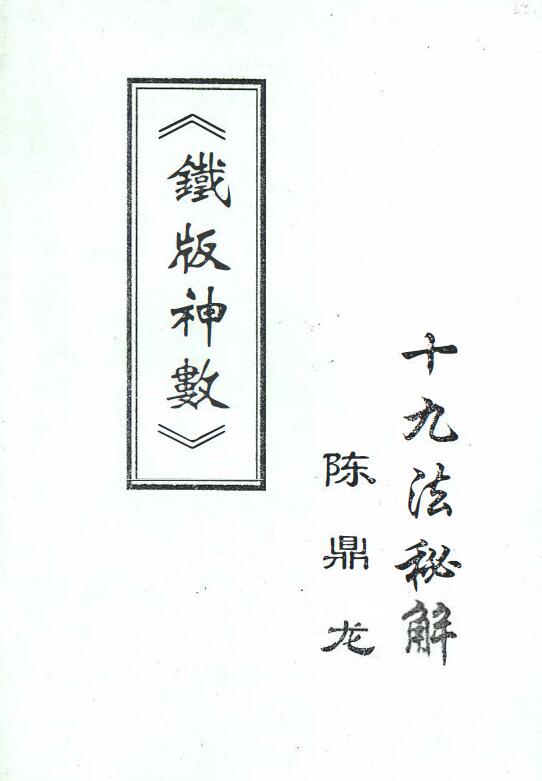 《鐵版神數》
十九法秘解
陈鼎龙